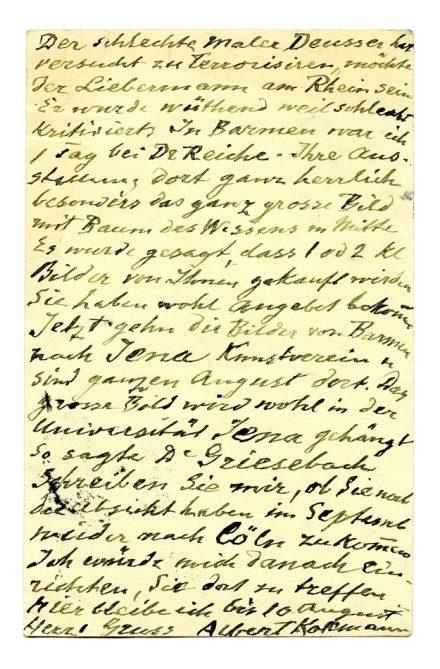 Der schlechte Maler Deusser hat
versucht zu Terrorisiren, möchte
der Liebermann am Rhein sein
Er wurde wüthend weil schlecht
kritisiert, In Barmen war ich
1 Tag bei Dr Reiche - Ihre Aus-
stellung dort ganz herrlich
besonders das ganz grosse Bild
mit Baum des Wissens in Mitte
Es wurde gesagt, dass 1 od 2 kl
Bilder von Ihnen gekauft wirden
Sie haben wohl Angebot bekom̄en
Jetzt gehn die Bilder von Barmen
nach Jena Kunstverein u
sind ganzen August dort. Das
grosse Bild wird wohl in der
Universität Jena gehängt
so sagte Dr Griesebach
Schreiben Sie mir, ob Sie noch
die Absicht haben im Septemb
wieder nach Cöln zu kom̄en
Ich würde mich danach ein-
richten, Sie dort zu treffen
Hier bleibe ich bis 10 August
Herzl Gruss Albert Kollmann